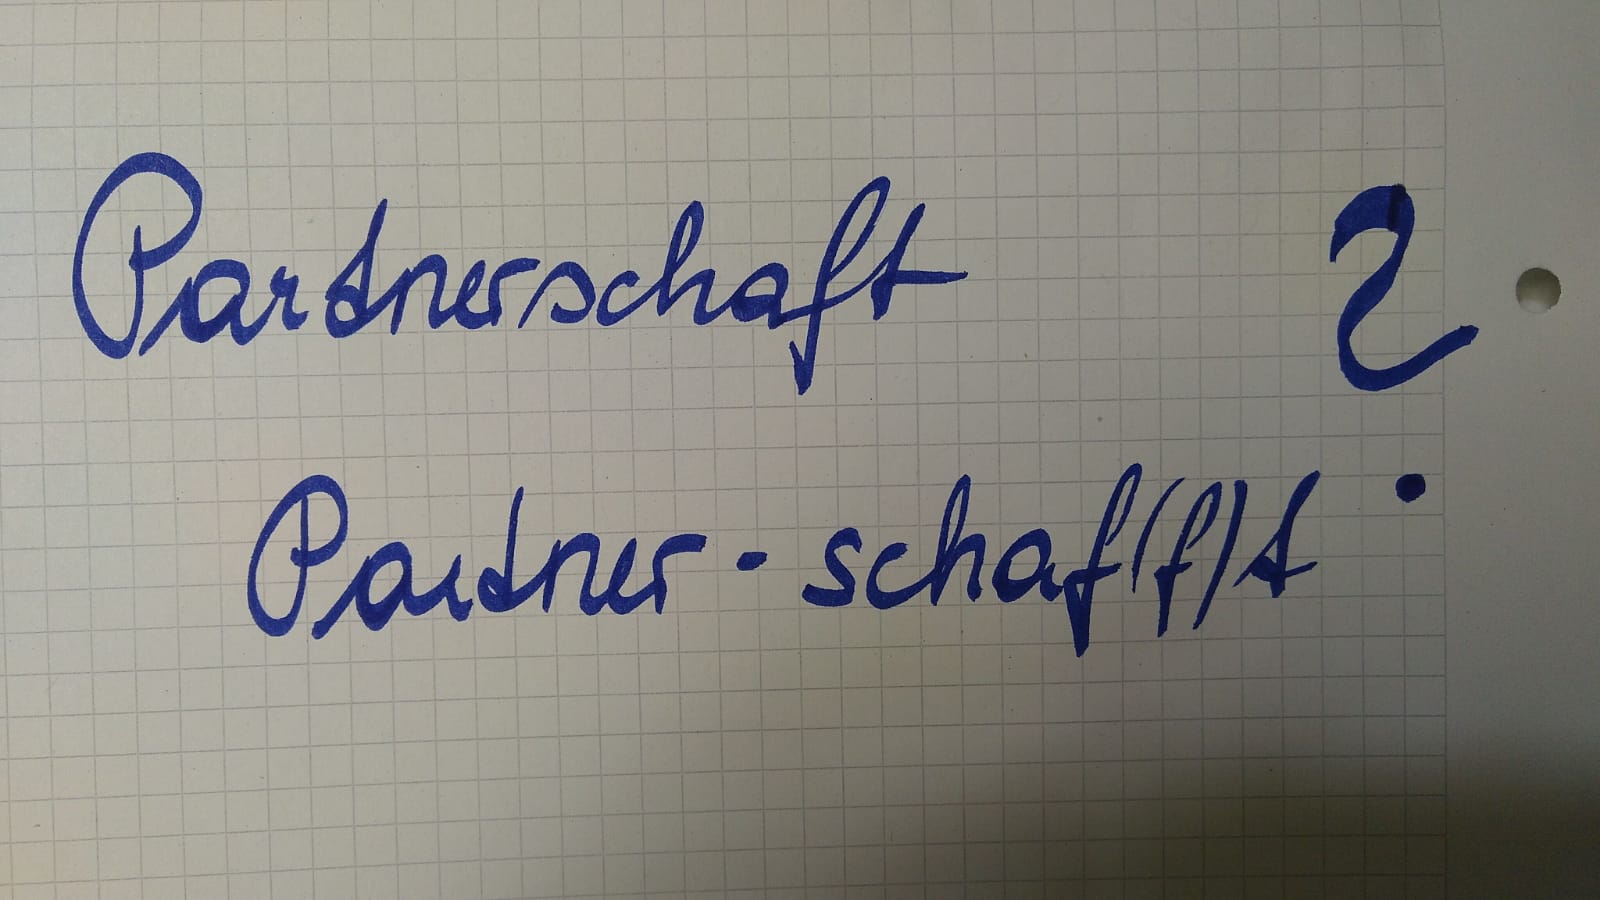 Partnerschaft ?
Partner-schaf(f)t